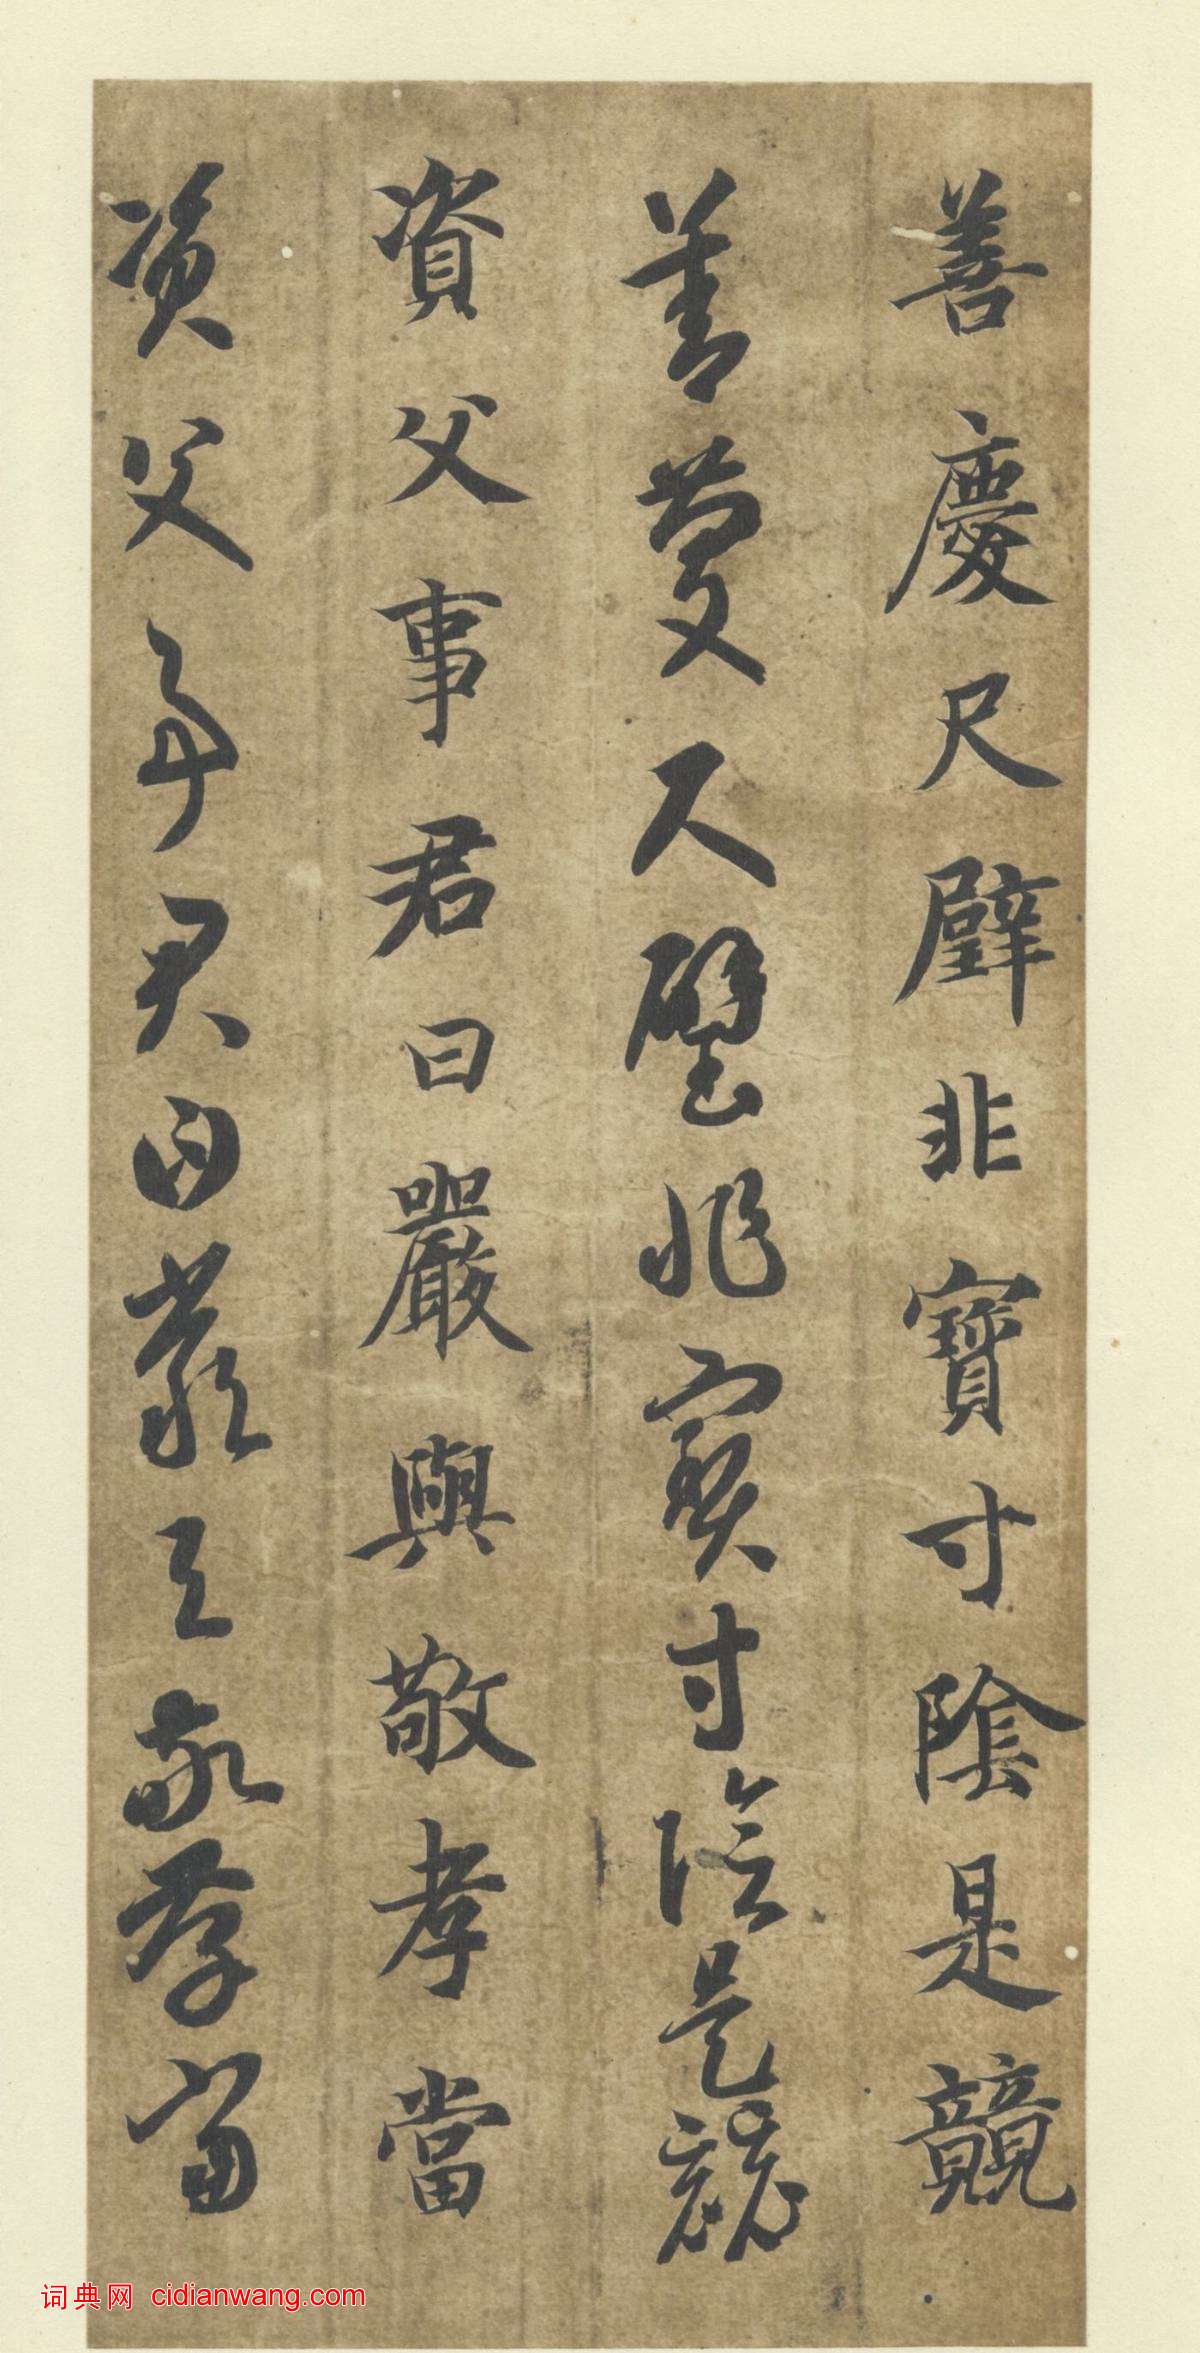 善慶尺璧非寶寸陰是競
善慶尺璧非寶寸陰是競
資父事君曰嚴與敬孝當
資父事君曰嚴與敬孝當
词典网 cidianwang.com